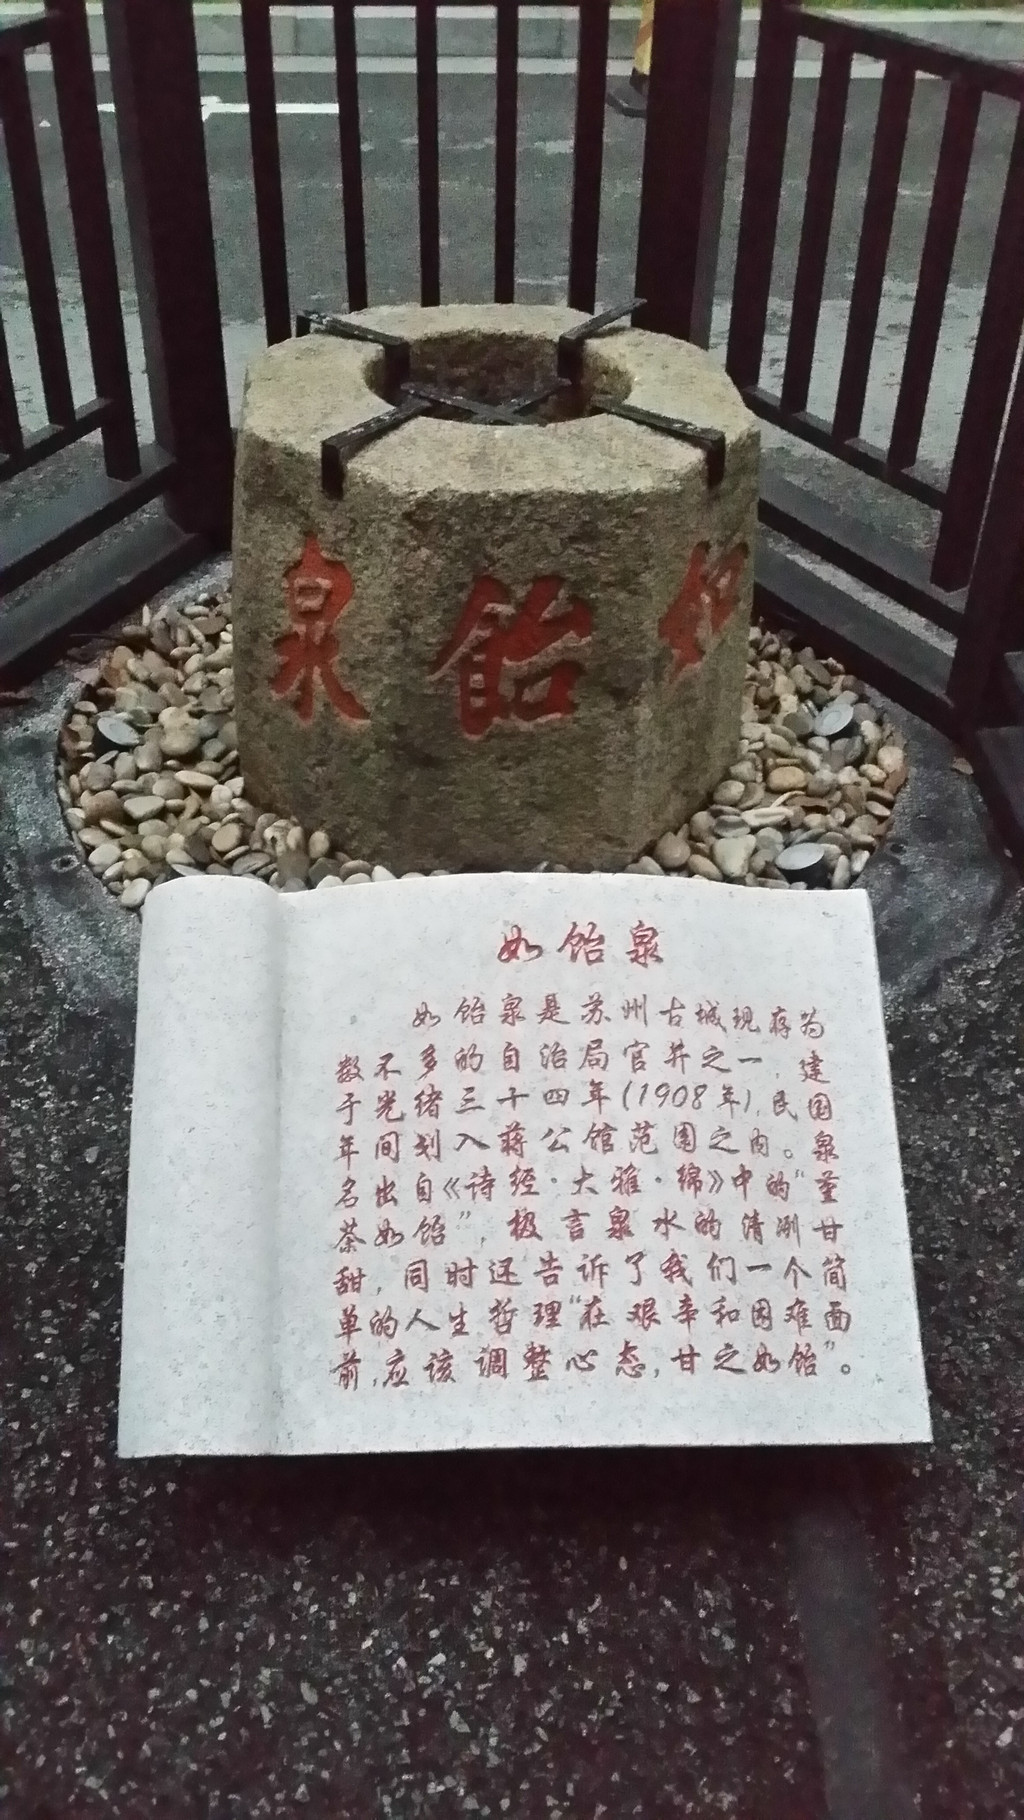 如飴泉
如饴泉
如饴泉是苏州古城现存为
数不多的自治局官井之一，建
于光绪三十四年(1908年)，民国
年间划入蒋公馆范围之内。泉
名出自《诗经·大雅·绵》中的“堇
荼如饴”，极言泉水的清冽甘
甜，同时还告诉了我们一个简
单的人生哲理“在艰辛和困难面
前，应该调整心态，甘之如饴”。